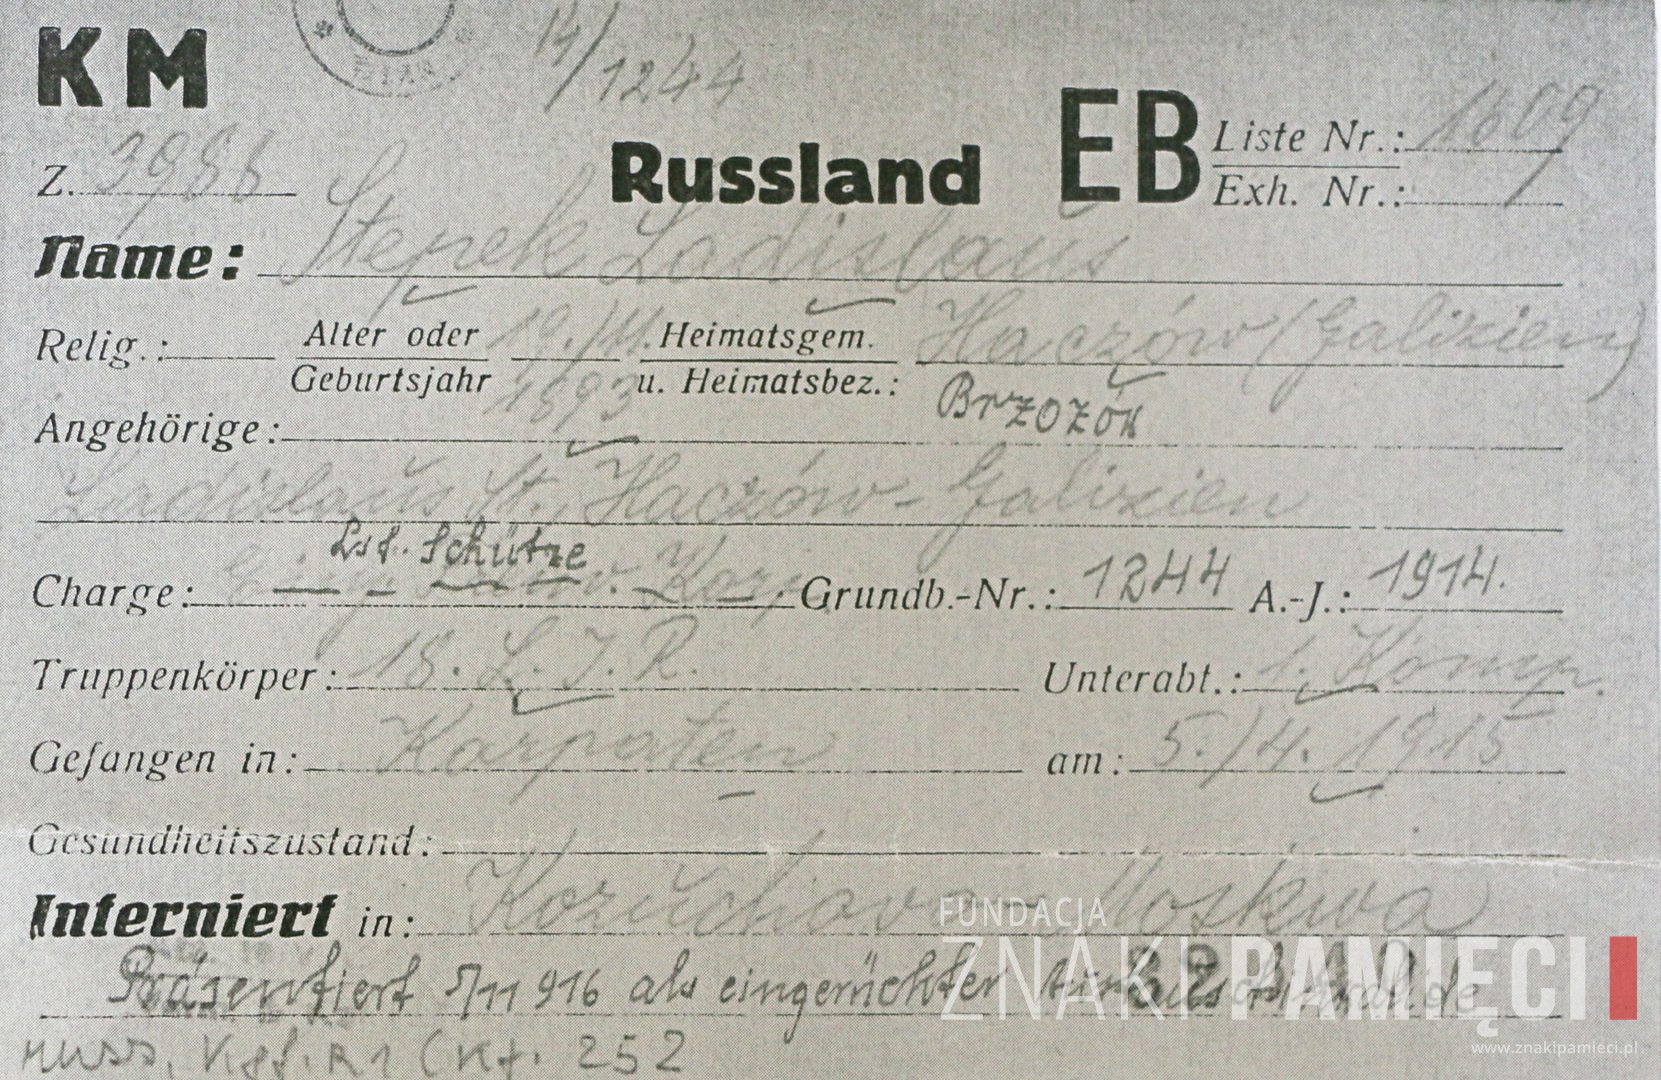 KM
14/1244
Russland
EB
Liste Nr.: 1609
Exh. Nr.:
Z. 3988
Name: Stepek Ladislaus
Relig.: Alter oder Geburtsjahr 19./11. 1893 Heimatsgem. u. Heimatsbez.: Haczów (Galizien)
Brzozów
Angehörige:
Ladislaus St., Haczów - Galizien
Lst. Schütze
Charge: Grundb.-Nr.: 1244 A.-J.: 1914.
Truppenkörper: 18. L. I. R. Unterabt.: 1. Komp.
Gefangen in: Karpaten am: 5./4. 1915
Gesundheitszustand:
Interniert in: Kozuchava Moskwa
Präsentiert 5/11 916 als eingerückter
russ. Kgf. R 1 (Kf. 252
FUNDACJA
ZNAKI PAMIĘCI
www.znakipamieci.pl